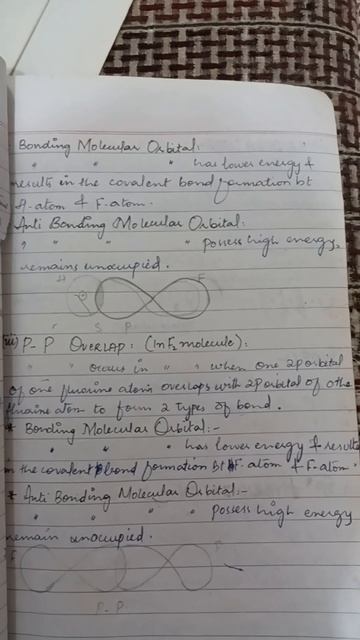 Bonding Molecular Orbital:
" " " has lower energy &
results in the covalent bond formation bt
H-atom & F-atom.
Anti Bonding Molecular Orbital:
" " " possess high energy,
remains unoccupied.
H F
S P
iii) P-P OVERLAP: (In F2 molecule):
" " occurs in " " when one 2P orbital
of one fluorine atom overlaps with 2P orbital of othe
fluorine atom to form 2 types of bond.
* Bonding Molecular Orbital:-
" " " has lower energy & results
in the covalent bond formation bt F-atom & F-atom.
* Anti Bonding Molecular Orbital:-
" " " " possess high energy
remain unoccupied.
F F
P-P